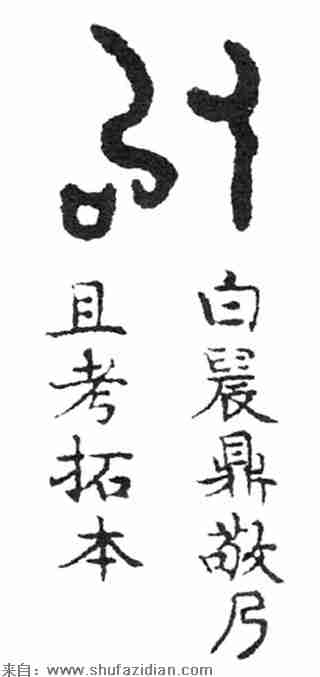 白晨鼎敬乃
且考拓本
来自：www.shufazidian.com